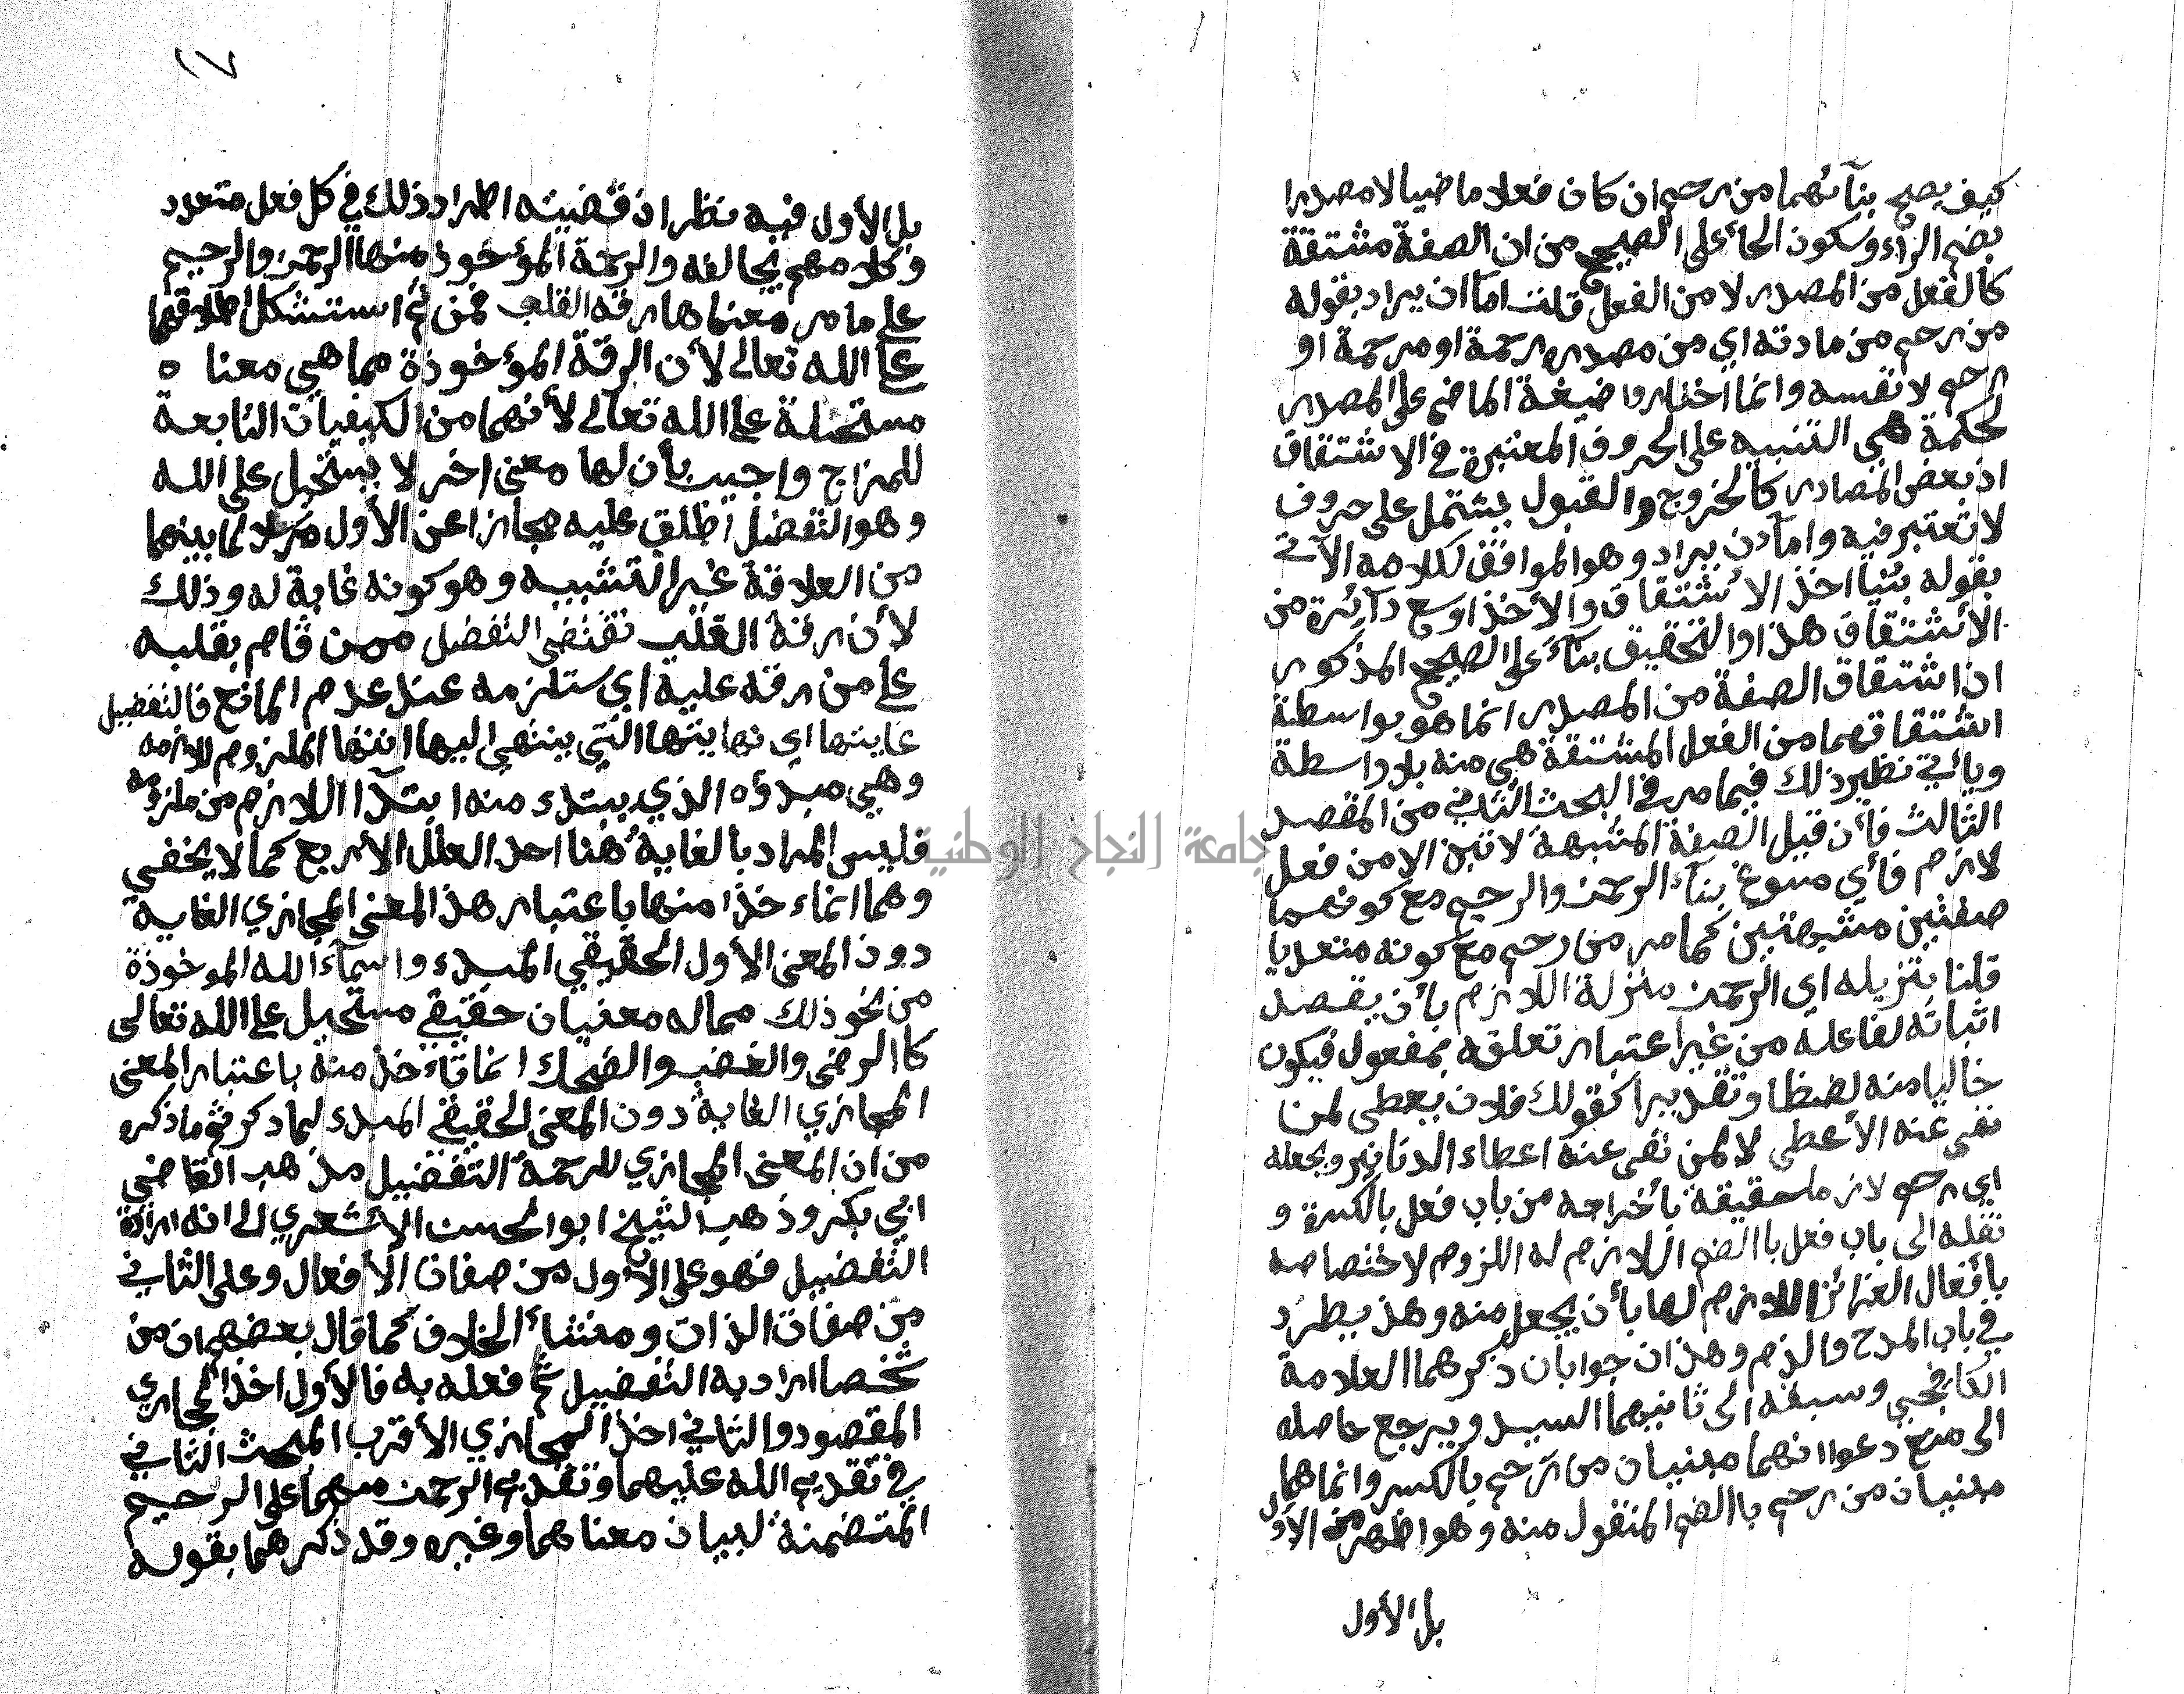 كيف يصح بنآئهما من رحم ان كان فعلا ماضيا لا مصدرا
بضم الرآء وسكون الحآ على الصحيح من ان الصفة مشتقة
كالفعل من المصدر لا من الفعل قلت امآ ان يراد بقوله
من رحم من مادته اي من مصدره رحمة او مرحمة او
رحم لا نفسه وانما اختاروا صيغة الماضي على المصدر
لحكمة هي التنبيه على الحروف المعتبرة في الاشتقاق
اذ بعض المصادر كالخروج والقبول يشتمل على حروف
لا تعتبر فيه وامآ ان يراد وهو الموافق لكلامه الآتي
بقوله بنيا اخذ الاشتقاق والأخذ اوسع دآئرة من
الأشتقاق هذا والتحقيق بنآء على الصحيح المذكور
ان اشتقاق الصفة من المصدر انما هو بواسطة
اشتقاقهما من الفعل المشتقة هي منه بلا واسطة
ويأتي نظير ذلك فيما مر في البحث الثاني من المقصد
الثالث فأن قيل الصفة المشبهة لا تبن الا من فعل
لازم فأي مسوغ بنآء الرحمن والرحيم مع كونهما
صفتين مشبهتين كما مر من رحم مع كونه متعديا
قلنا بتنزيله اي الرحمن منزلة اللازم بأن يقصد
اثباته لفاعله من غير اعتبار تعلقه بمفعول فيكون
خاليا منه لفظا وتقديرا كقولك فلان يعطى لمن
نفى عنه الأعطى لا لمن نفى عنه اعطاء الدنانير وبجعله
اي رحم لازما حقيقة بأخراجه من باب فعل بالكسرة و
نقله الى باب فعل باالضم اللازم له اللزوم لاختصاصه
بأفعال الغرائز اللازم لها بأن يجعل منه وهذ يطرد
في باب المدح والذم وهذان جوابان ذكرهما العلامة
الكافيجي وسبقه الى ثانيهما السيد ويرجع حاصله
الى منع دعوا انهما مبنيان من رحم بالكسر وانما هما
مبنيان من رحم باالضم المنقول منه وهو اظهر من الأول
بل الأول
بل الأول فيه نظر اذ قضيته اطراد ذلك في كل فعل متعدد
وكلامهم يخالفه والرحمة المؤخوذ منها الرحمن والرحيم
على ما مر معناها رقة القلب فمن ثم استشكل اطلاقهما
على الله تعالى لأن الرقة المؤخوذة مما هي معنا ه
مستحيلة على الله تعالى لأنهما من الكيفيات التابعة
للمزاج واجيب بأن لها معنى اخر لا يستحيل على الله
وهو التفضل اطلق عليه مجازا عن الأول مرسلا لما بينهما
من العلاقة غير التشبيه وهو كونه غاية له وذلك
لأن رقة القلب تقتضى التفضل ممن قام بقلبه
على من رقه عليه اي ستلزمه عند عدم المانع فالتفضيل
غايتها اي نهايتها التي ينتهي اليها انتها الملزوم للازمه
وهي مبدؤه الذي يبتدء منه ابتدآ اللازم من ملزومه
فليس المراد بالغاية هنا احد العلل الأربع كما لا يخفى
وهما انماء خذا منها باعتبار هذ المعنى المجازي الغاية
دون المعنى الأول الحقيقي المبدء واسمآء الله الموخوذة
من نحو ذلك مما له معنيان حقيقي مستحيل على الله تعالى
كا الرضى والغضب والضحك انما تاء خذ منه باعتبار المعنى
المجازي الغاية دون المعنى الحقيقي المبدء لما ذكر ثم ما ذكره
من ان المعنى المجازي للرحمة التفضيل مذهب القاضي
ابي بكر وذهب الشيخ ابو الحسن الأشعري الى انه ارادة
التفضيل فهو على الأول من صفات الأفعال وعلى الثاني
من صفات الذات ومنشأ الخلاف كما قال بعضهم ان من
شخصا اراد به التفضيل ثم فعله به فالأول اخذ المجازي
المقصود والثاني اخذ المجازي الأقرب المبحث الثاني
في تقديم الله عليهما وتقديم الرحمن منهما على الرحيم
المتضمنة لبيان معناهما وغيره وقد ذكرهما بقوله
جامعة النجاح الوطنية